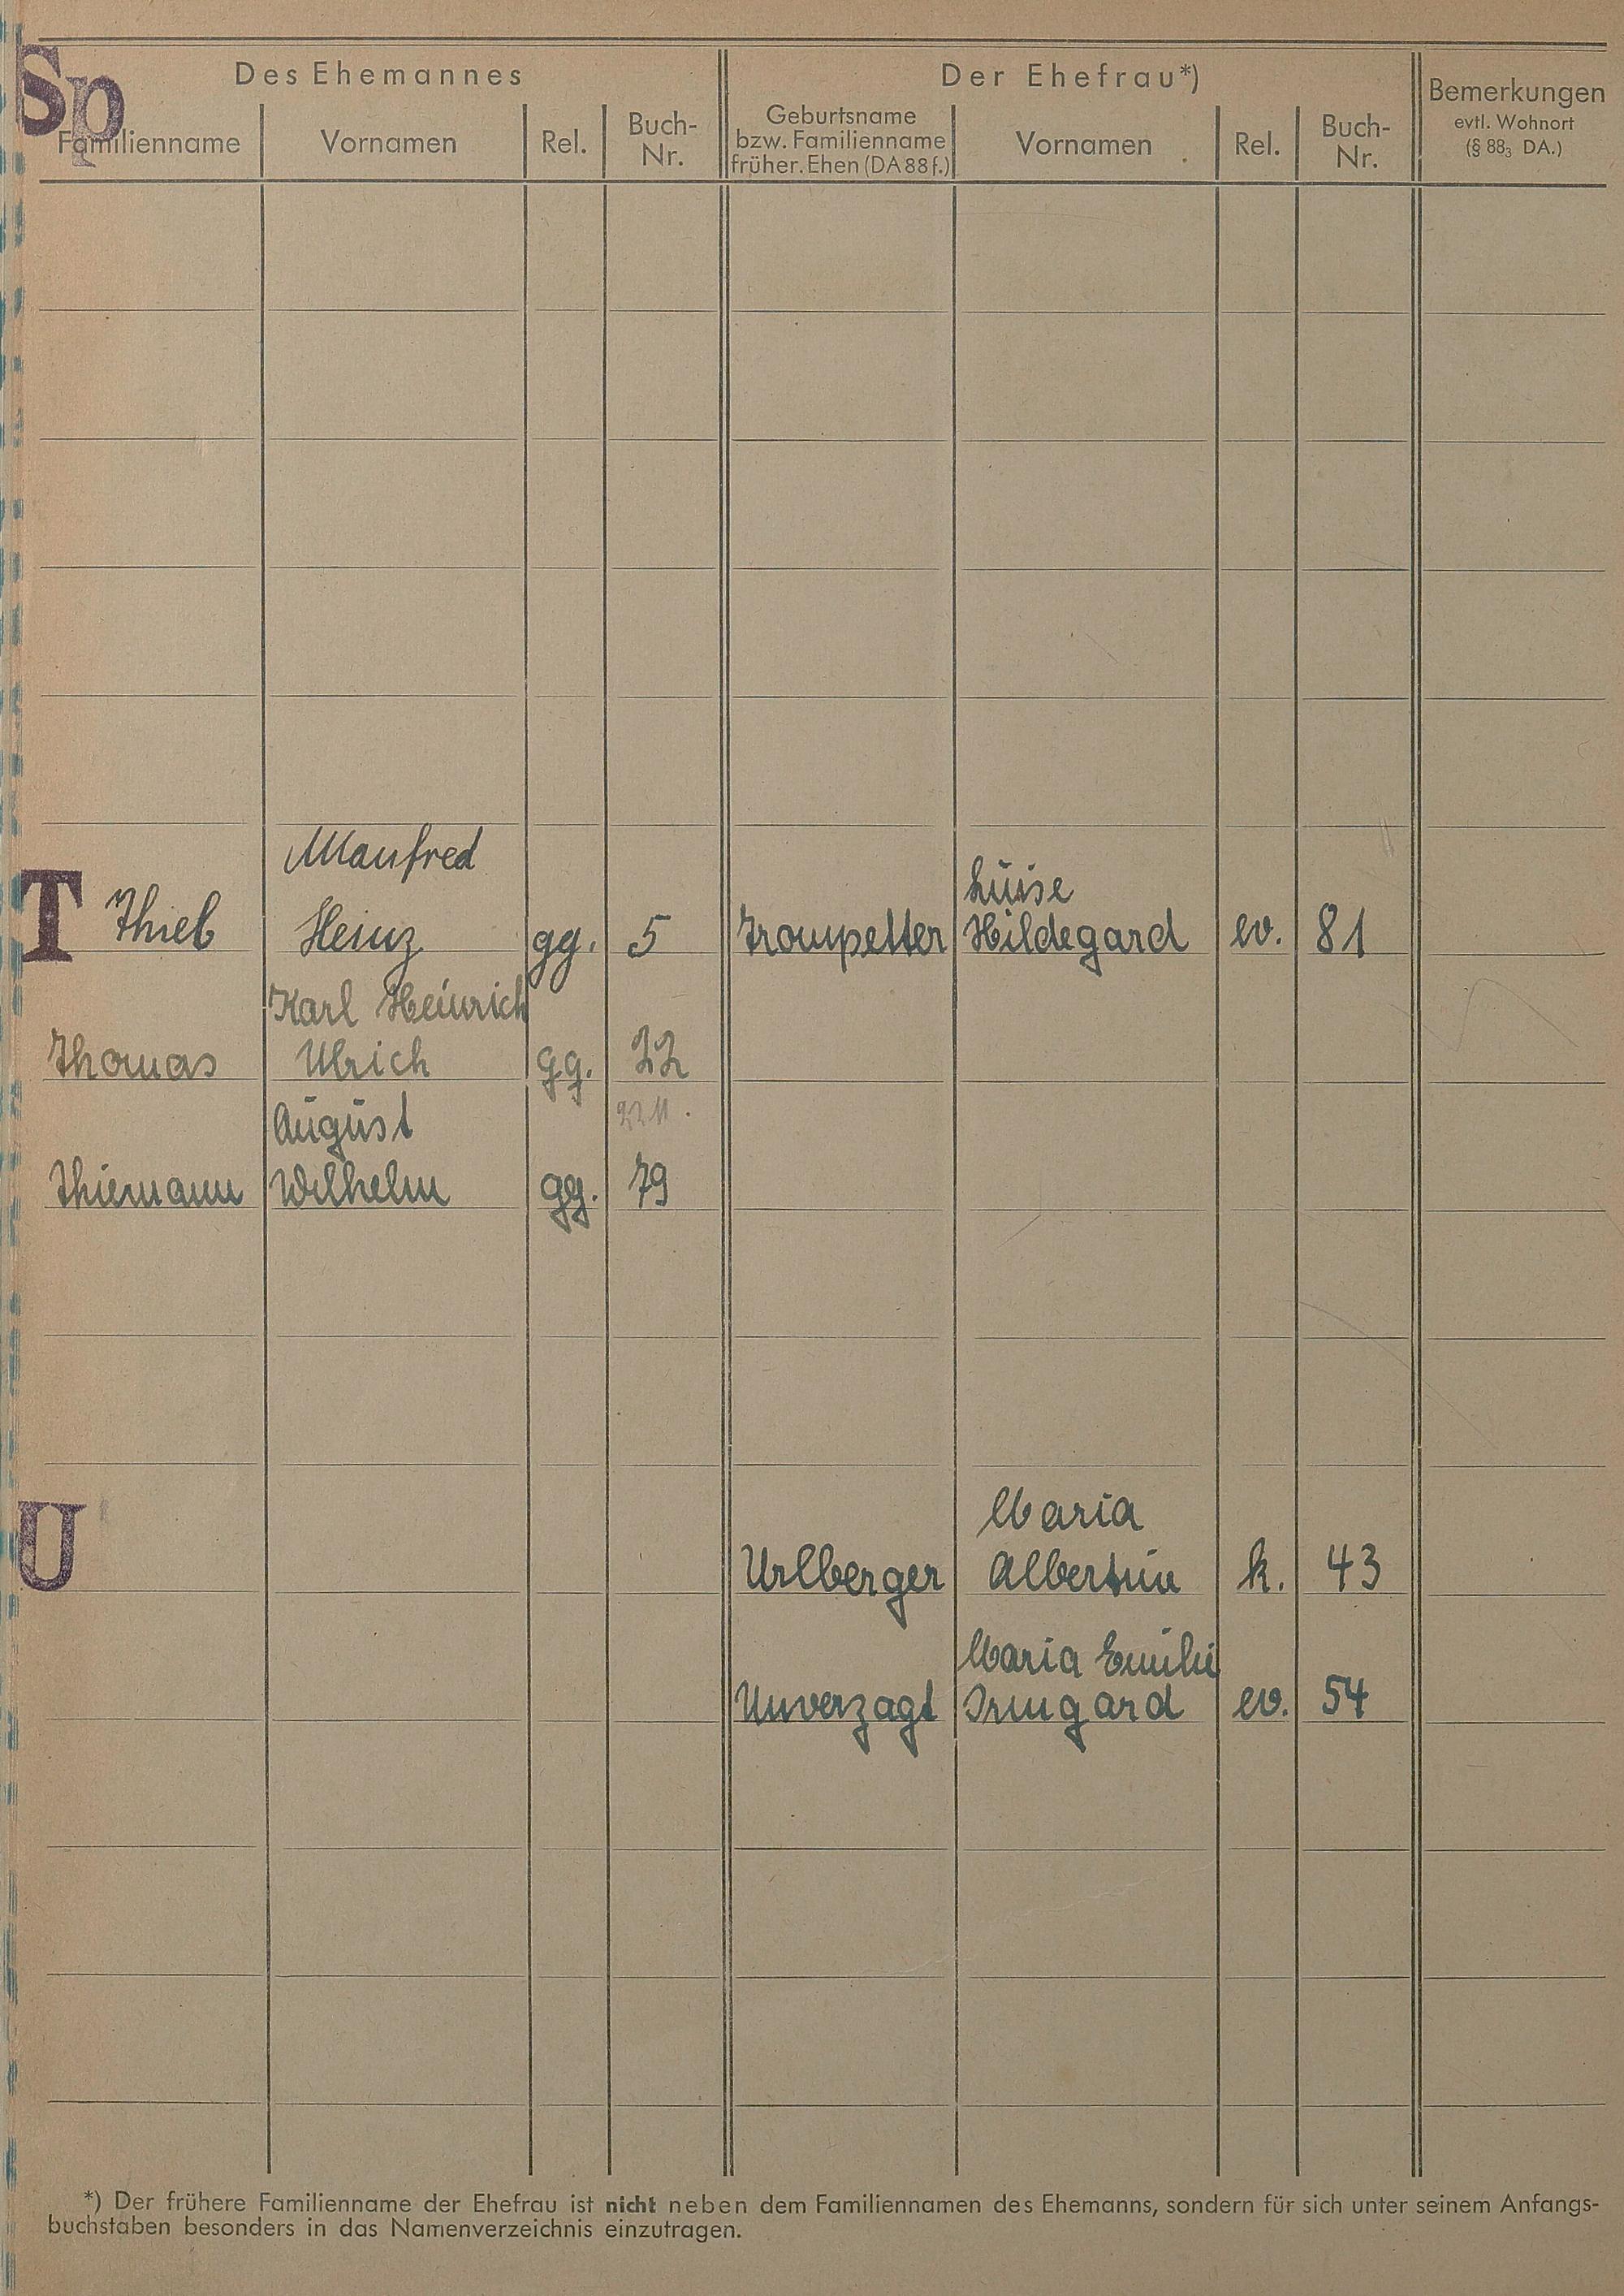 Sp
Des Ehemannes Der Ehefrau*) Bemerkungen
evtl. Wohnort
(§ 88₃ DA.)
Familienname Vornamen Rel. Buch-Nr. Geburtsname bzw. Familienname früher. Ehen (DA 88 f.) Vornamen Rel. Buch-Nr.
Manfred Luise
T Thieb Heinz gg. 5 Trompetter Hildegard ev. 81
Karl Heinrich
Thomas Ulrich gg. 22
August
Thiemann Wilhelm gg. 79
Maria
U Urlberger Albertine k. 43
Maria Emilie
Unverzagt Irmgard ev. 54
*) Der frühere Familienname der Ehefrau ist nicht neben dem Familiennamen des Ehemanns, sondern für sich unter seinem Anfangs-
buchstaben besonders in das Namenverzeichnis einzutragen.